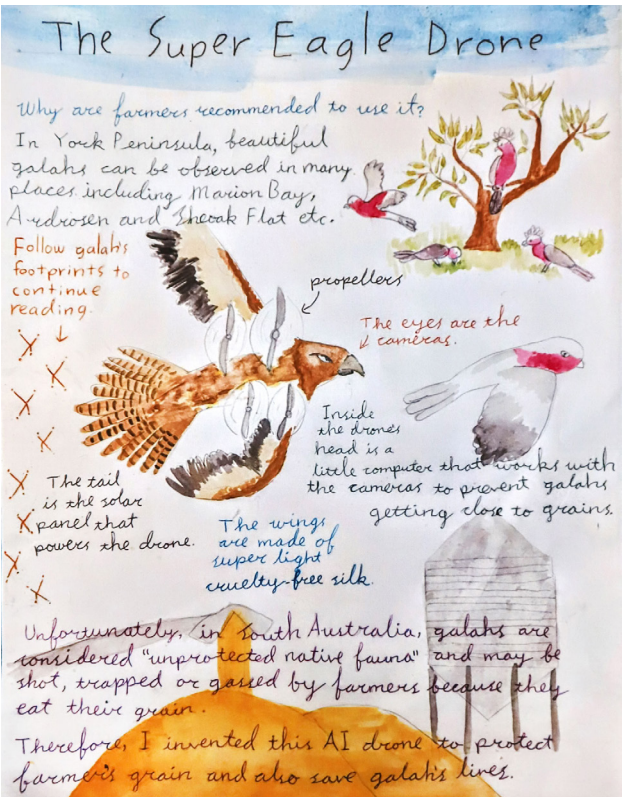 The Super Eagle Drone
Why are farmers recommended to use it?
In York Peninsula, beautiful
galahs can be observed in many
places including Marion Bay,
Ardrosen and Sheoak Flat etc.
Follow galahs
footprints to
continue
reading.
propellers
The eyes are the
cameras.
Inside
the drone's
head is a
little computer that works with
the cameras to prevent galahs
getting close to grains.
The tail
is the solar
panel that
powers the drone.
The wings
are made of
super light
cruelty-free silk.
Unfortunately, in South Australia, galahs are
considered "unprotected native fauna" and may be
shot, trapped or gassed by farmers because they
eat their grain.
Therefore, I invented this AI drone to protect
farmer's grain and also save galah's lives.